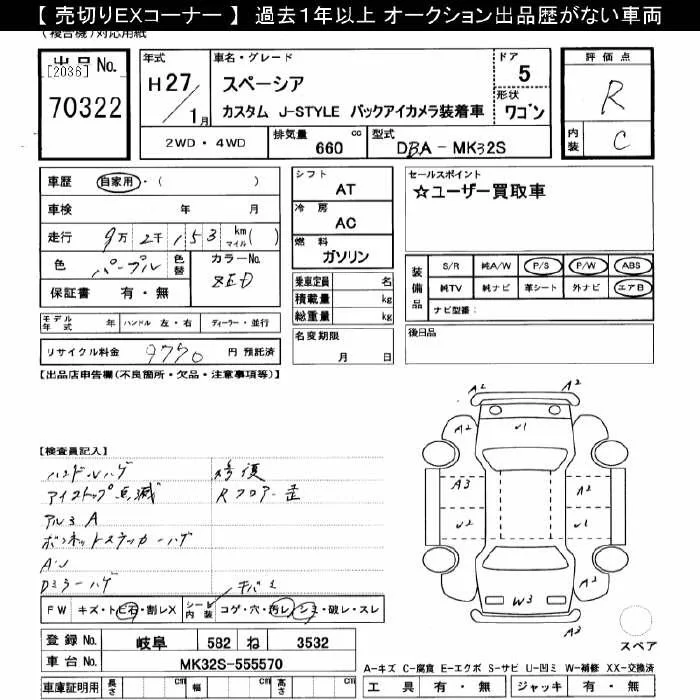 【 売切りEXコーナー 】 過去1年以上 オークション出品歴がない車両
(複合機)対応用紙
出品No.
[2036]
70322
年式
H27/1月
車名・グレード
スペーシア
カスタム J-STYLE バックアイカメラ装着車
ドア
5
形状
ワゴン
評価点
R
内装
C
2WD・4WD
排気量 660 cc
型式 DBA-MK32S
車歴 自家用・( )
車検 年 月
走行 9万2千153 km マイル( )
色 パープル
色替
カラーNo. ZED
保証書 有・無
シフト
AT
冷房
AC
燃料
ガソリン
乗車定員 名
積載量 kg
総重量 kg
セールスポイント
☆ユーザー買取車
装備品
S/R 純A/W P/S P/W ABS
純TV 純ナビ 革シート 外ナビ エアB
ナビ型番:
モデル年式 年 ハンドル 左・右 ディーラー・並行
名変期限
月 日
後日品
リサイクル料金 9770 円 預託済
【出品店申告欄(不良箇所・欠品・注意事項等)】
【検査員記入】
ハンドルハゲ
アイストップ点滅
アルミA
ボンネットステッカーハゲ
AU
Dミラーハゲ
修復
Rフロアー歪
A2 A2
A2 U1 A2
A3 A2
U2 U1
A2
W3
A3 A2
FW キズ・トビ石・割レX
シート内装 コゲ・穴・汚レ・シミ・破レ・スレ
キバミ
スペア
登録No. 岐阜 582 ね 3532
車台No. MK32S-555570
車庫証明用 長さ cm 幅 cm 高さ cm
A-キズ C-腐食 E-エクボ S-サビ U-凹ミ W-補修 XX-交換済
工具 有・無 ジャッキ 有・無